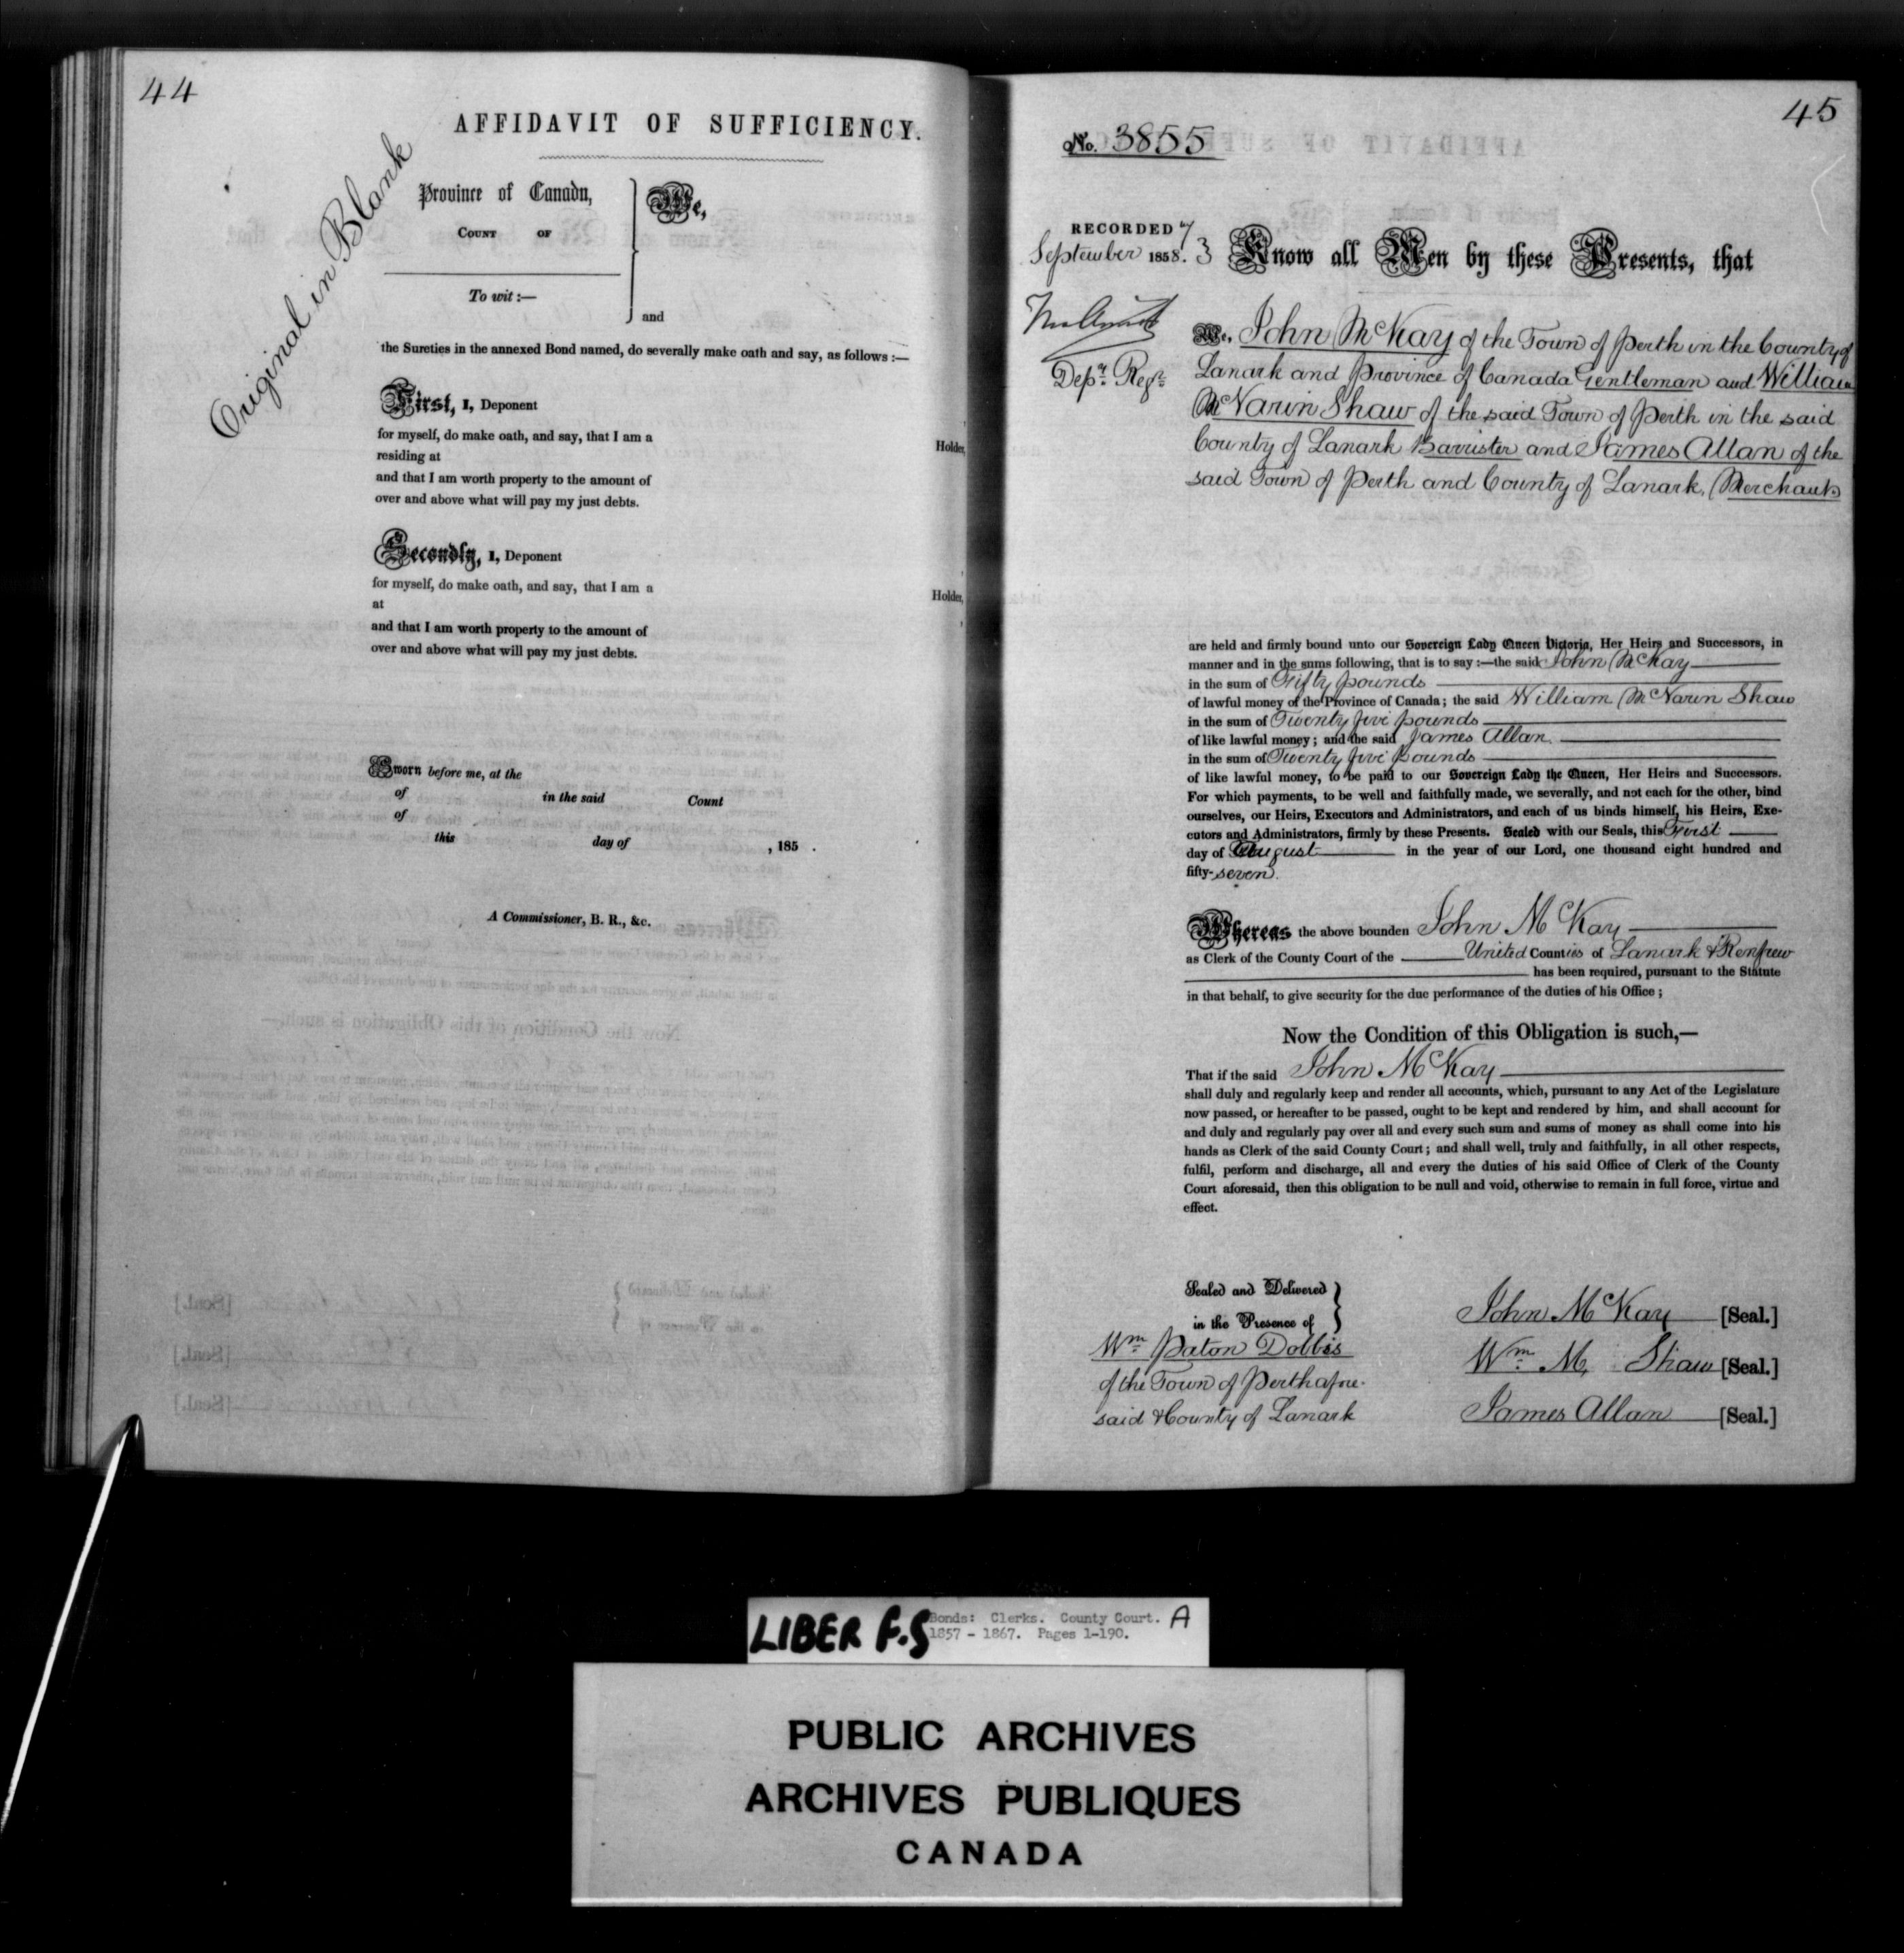 44
AFFIDAVIT OF SUFFICIENCY.
Original in Blank
Province of Canada,
COUNT OF
To wit :—
We,
and
the Sureties in the annexed Bond named, do severally make oath and say, as follows :—
First, I, Deponent
for myself, do make oath, and say, that I am a
Holder,
residing at
and that I am worth property to the amount of
over and above what will pay my just debts.
Secondly, I, Deponent
for myself, do make oath, and say, that I am a
Holder,
at
and that I am worth property to the amount of
over and above what will pay my just debts.
Sworn before me, at the
of in the said Count
of
this day of , 185 .
A Commissioner, B. R., &c.
45
No. 3855
RECORDED 7
September 1858. 3
Depy Regr
Know all Men by these Presents, that
We, John McKay of the Town of Perth in the County of
Lanark and Province of Canada Gentleman and William
McNarin Shaw of the said Town of Perth in the said
County of Lanark Barrister and James Allan of the
said Town of Perth and County of Lanark, Merchant
are held and firmly bound unto our Sovereign Lady Queen Victoria, Her Heirs and Successors, in
manner and in the sums following, that is to say :—the said John McKay
in the sum of Fifty pounds
of lawful money of the Province of Canada; the said William McNarin Shaw
in the sum of Twenty five pounds
of like lawful money; and the said James Allan
in the sum of Twenty five pounds
of like lawful money, to be paid to our Sovereign Lady the Queen, Her Heirs and Successors.
For which payments, to be well and faithfully made, we severally, and not each for the other, bind
ourselves, our Heirs, Executors and Administrators, and each of us binds himself, his Heirs, Exe-
cutors and Administrators, firmly by these Presents. Sealed with our Seals, this First
day of August in the year of our Lord, one thousand eight hundred and
fifty-seven.
Whereas the above bounden John McKay
as Clerk of the County Court of the United Counties of Lanark & Renfrew
has been required, pursuant to the Statute
in that behalf, to give security for the due performance of the duties of his Office ;
Now the Condition of this Obligation is such,—
That if the said John McKay
shall duly and regularly keep and render all accounts, which, pursuant to any Act of the Legislature
now passed, or hereafter to be passed, ought to be kept and rendered by him, and shall account for
and duly and regularly pay over all and every such sum and sums of money as shall come into his
hands as Clerk of the said County Court ; and shall well, truly and faithfully, in all other respects,
fulfil, perform and discharge, all and every the duties of his said Office of Clerk of the County
Court aforesaid, then this obligation to be null and void, otherwise to remain in full force, virtue and
effect.
Sealed and Delivered
in the Presence of
Wm Paton Dobbis
of the Town of Perth afore-
said & County of Lanark
John McKay [Seal.]
Wm M, Shaw [Seal.]
James Allan [Seal.]
LIBER F.S
Bonds: Clerks. County Court. A
1857 - 1867. Pages 1-190.
PUBLIC ARCHIVES
ARCHIVES PUBLIQUES
CANADA